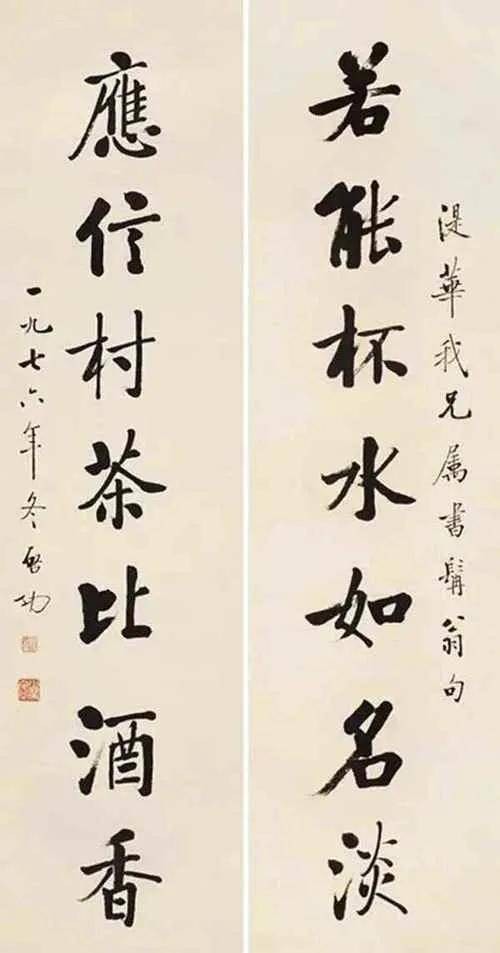 湜華我兄属書髯翁句
若能杯水如名淡
應信村茶比酒香
一九七六年冬启功